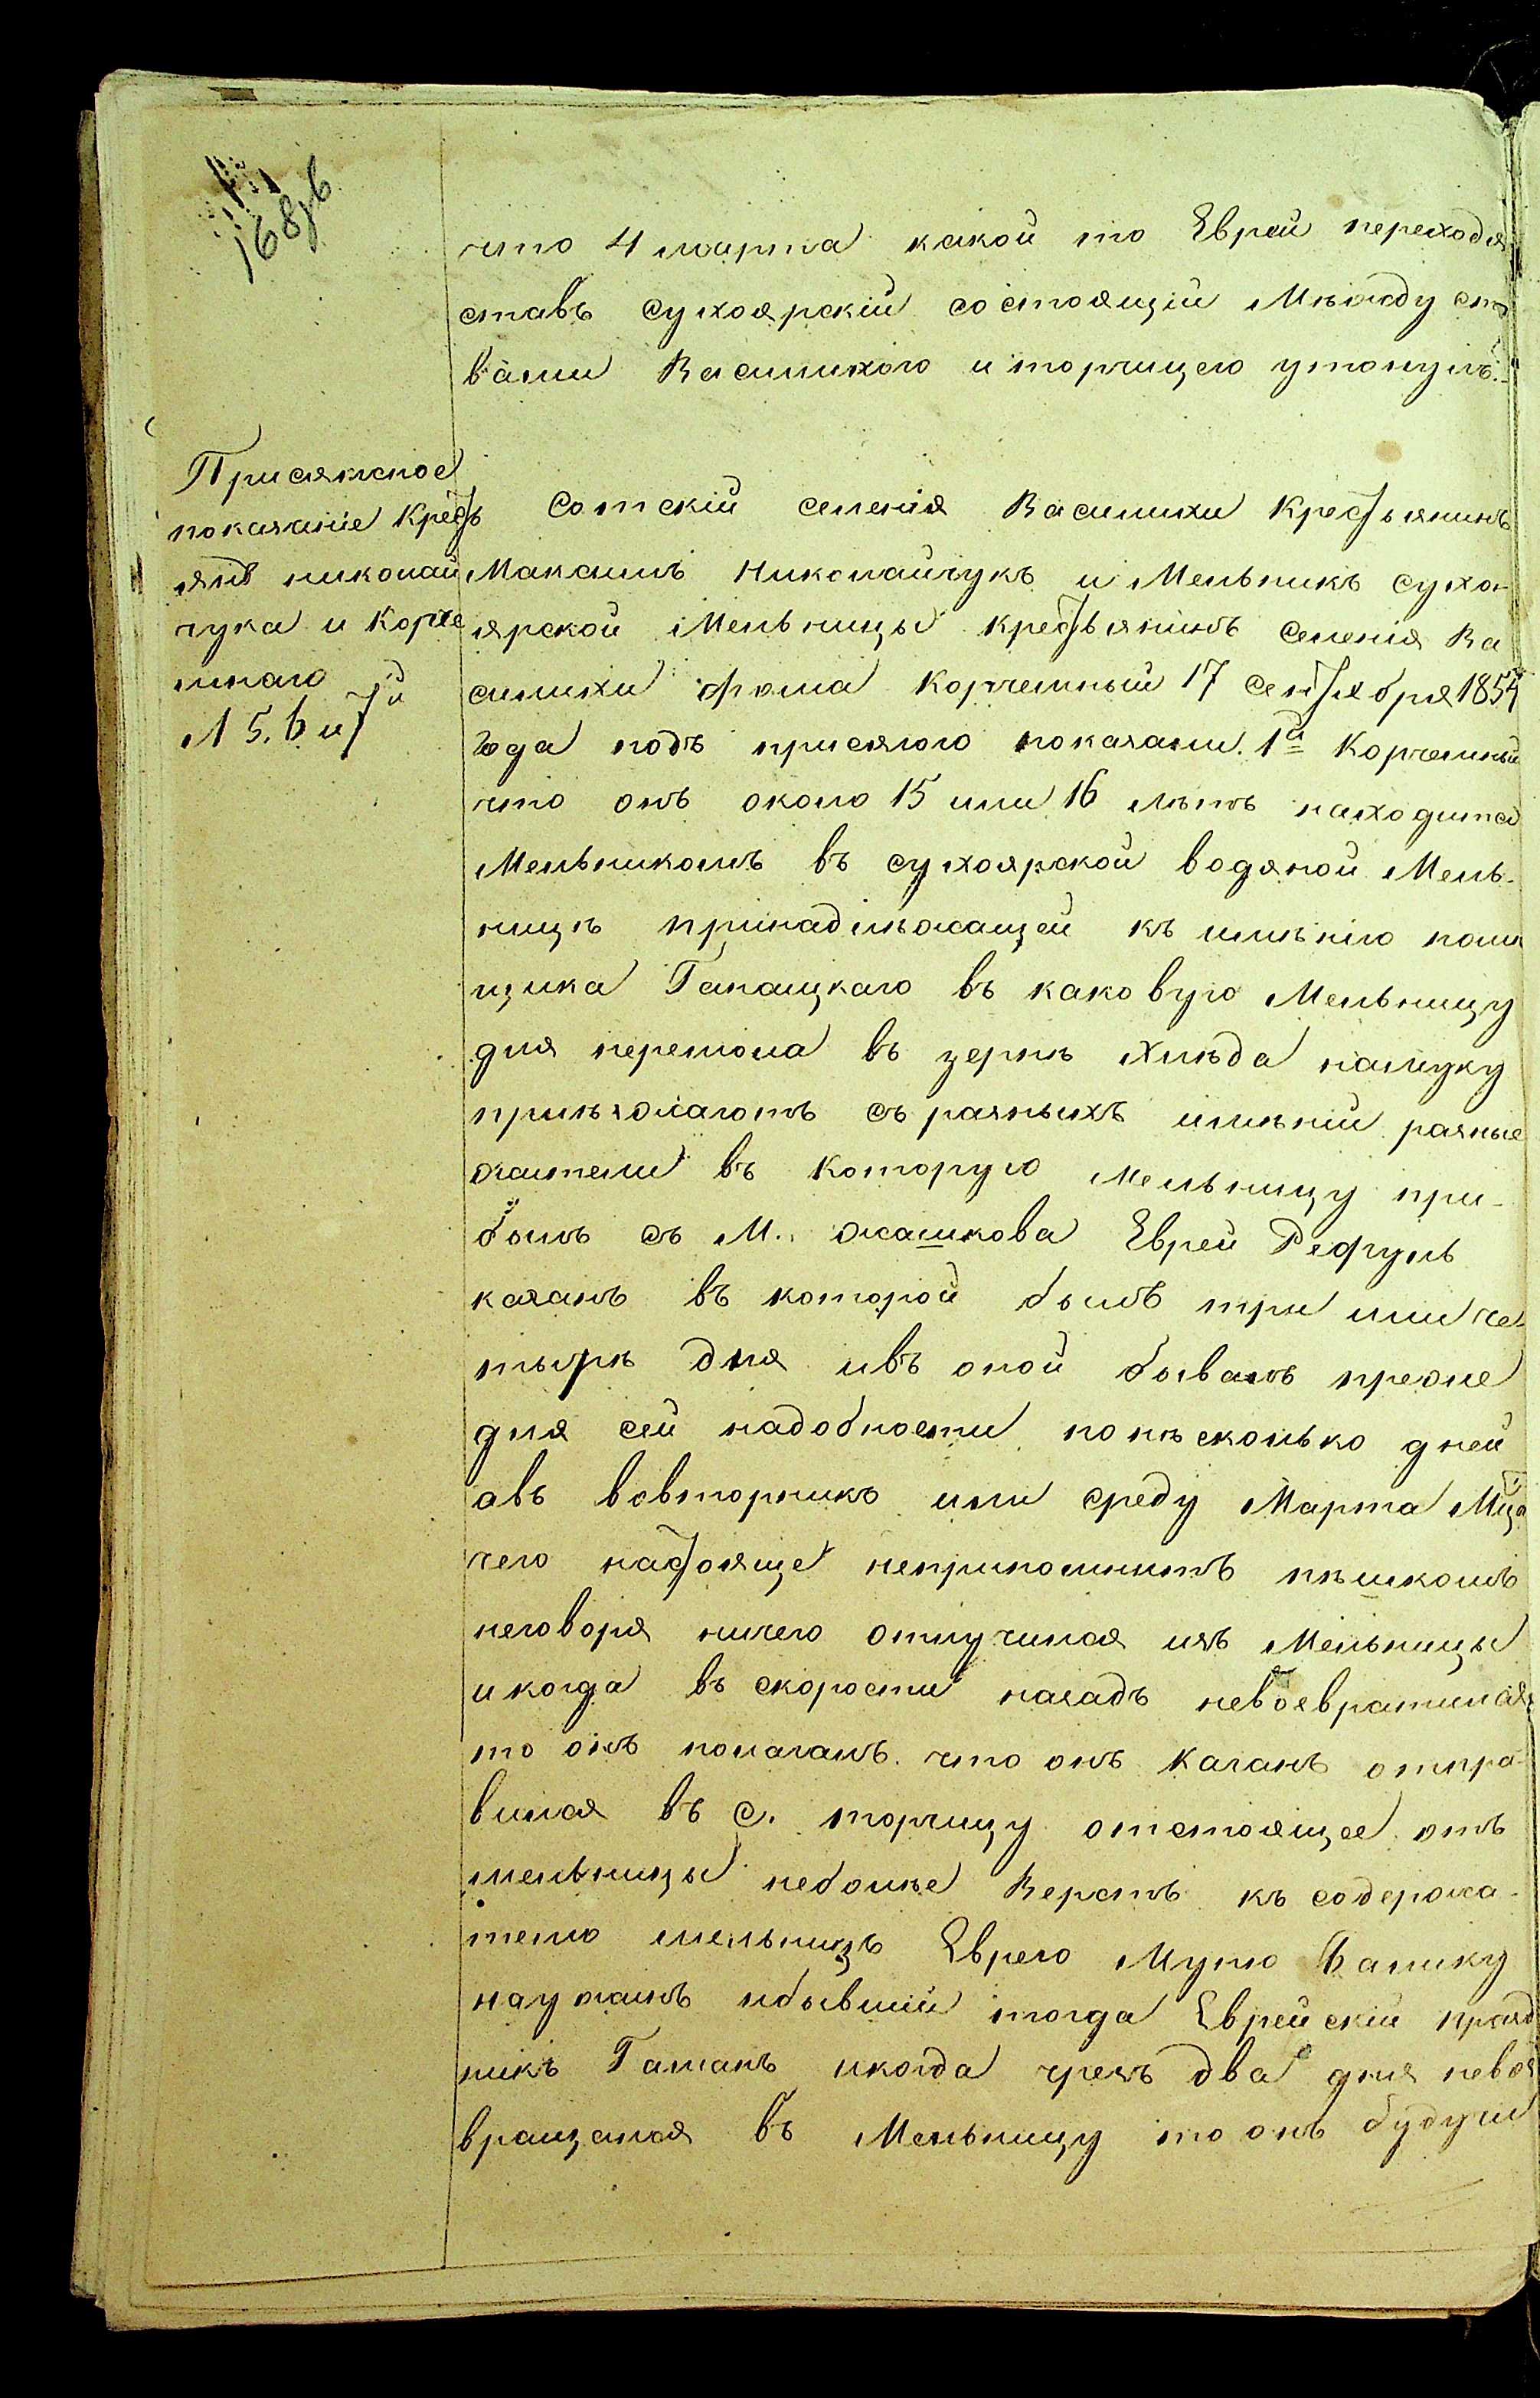 168зв
что 4 марта какой то Еврей переходя
ставъ сухоярскій состоящій Между ста
вами Василихою и торчицею утонулъ.
Присяжное
показаніе Кресть
янъ николай
чука и Корче
мнаго
Л 5. 6 и 7й
Сотскій селенія Василихи Крестьянинъ
Максимъ Николайчукъ и Мельникъ сухо-
ярской Мельницы крестьянинъ селенія Ва
силихи фома Корчемный 17 сентября 1854
Года подъ присягою показали. 1й Корчемный
что онъ около 15 или 16 лѣтъ находится
Мельникомъ въ сухоярской водяной Мель-
ницѣ принадлѣжащей къ имѣнію помѣ
щика въ каковую Мельницу
для перемола въ зернѣ хлѣба намуку
приѣзжаютъ съ разныхъ имѣній разные
жители въ которую мельницу при-
былъ съ М. жашкова Еврей Рефуль
каганъ въ которой былъ три или че-
тырѣ дня ивъ оной бывалъ прежде
для сей надобности понѣсколько дней
авъ вовторникъ или среду Марта Мца
чего настояще неприпомнитъ пѣшкомъ
неговоря ничего отлучился изъ Мельницы
икогда въ скорости назадъ невозвратился
то онъ полагалъ что онъ Каганъ отпра-
вился въ с. торчицу отстоящее отъ
мельницы неболѣе Верстъ къ содержа-
телю мельницъ Еврею Мутю
наужинъ ибывшій тогда Еврейскій празд
никъ Гаманъ икогда чрезъ два дня невоз
вращался въ Мельницу то онъ будучи